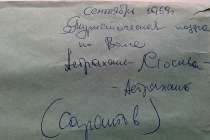 Сентябрь 1969г.
Туристическая поездка
по Волге
Астрахань - Москва -
Астрахань
(Саратов)